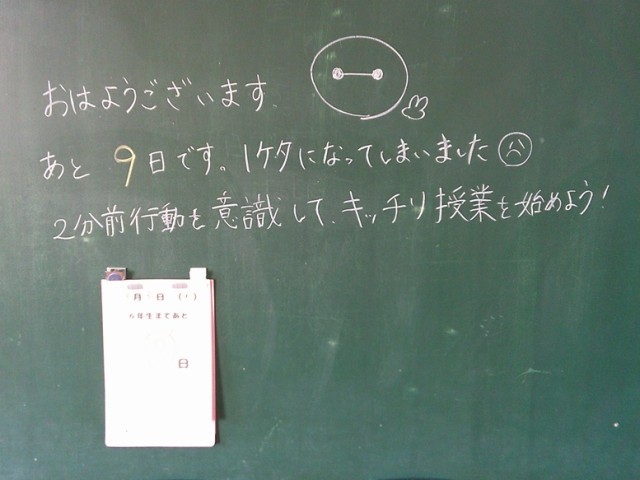 おはようございます
あと 9日です。1ケタになってしまいました
2分前行動を意識して、キッチリ授業を始めよう!
月 日 ( )
6年生まであと
日